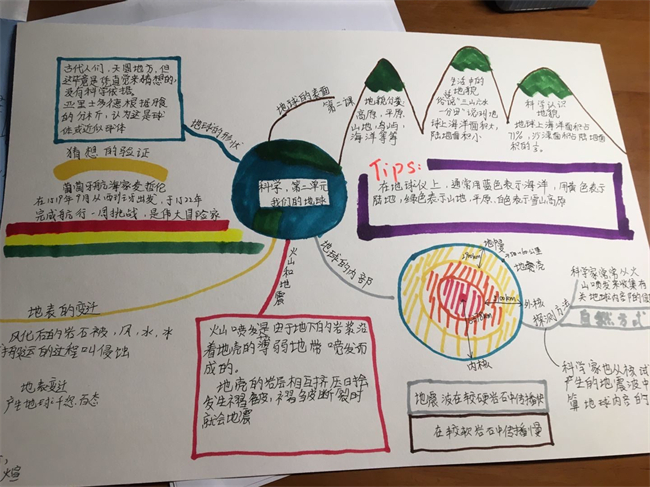 古代人们，天圆地方，但
这毕竟是凭直觉来猜想的，
没有科学依据，
亚里士多德根据
的分析，认为这是球
体或近似球体
地球的形状
猜想的验证
葡萄牙航海家麦哲伦
在1519年9月从西班牙出发，于1522年
完成航行一周挑战，是伟大冒险家
科学，第二单元
我们的地球
地球的表面
第二课
地貌分类
高原，平原
山地，岛屿，
海洋等等
生活中的
地貌
俗说“三山六水
一分田”说明地
球上海洋面积大，
陆地面积小
科学认识
地貌
地球上海洋面积占
71%，
积的
Tips:
在地球仪上，通常用蓝色表示海洋，用黄色表示
陆地，绿色表示山地、平原，白色表示雪山高原
火山和地震
火山喷发是由于地下的岩浆沿
着地壳的薄弱地带喷发而
成的。
地壳的岩层相互挤压日久会
发生褶皱，褶皱断裂时
就会地震
地球的内部
地幔
地壳
外核
内核
探测方法
科学家常常从火
山喷发来收集有
关地球内部的信
自然方式
科学家也从核试
产生的地震波中
算地球内部的
地震波在较硬岩石中传播快
在较软岩石中传播慢
地表的变迁
风化后的岩石被，风，水，冰
搬运的过程叫侵蚀
地表变迁
产生地球千姿百态